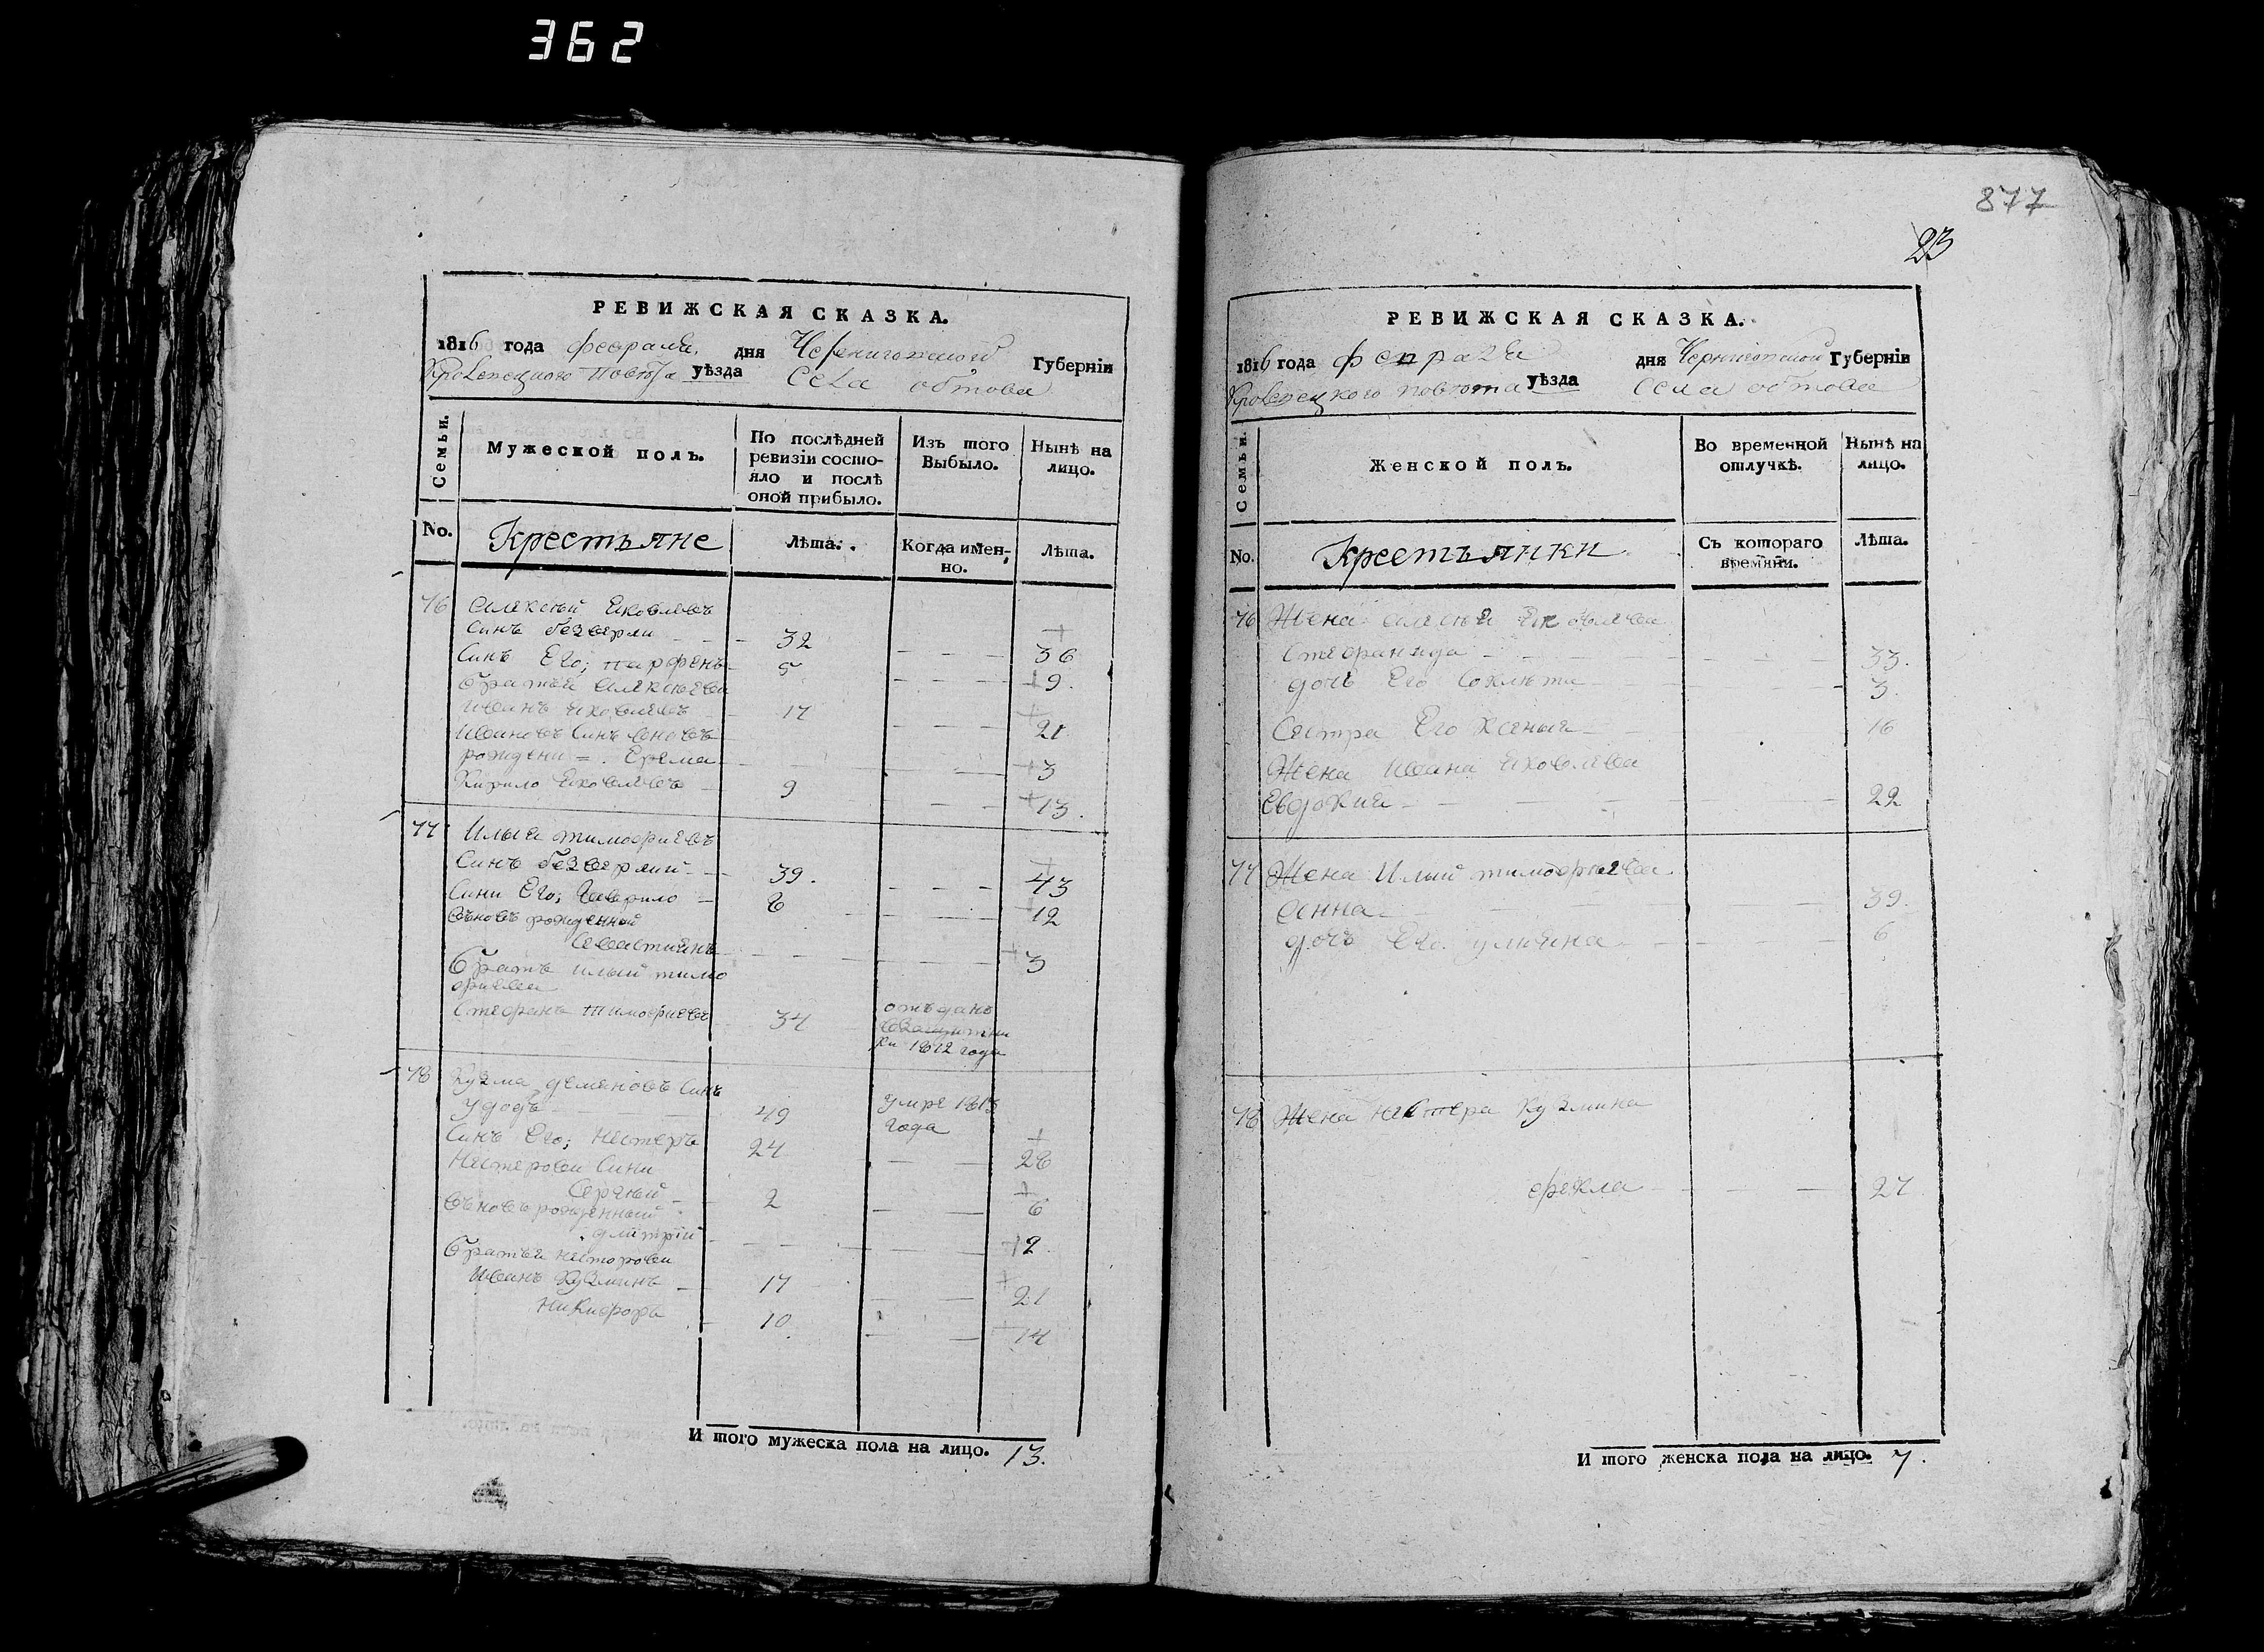 362
РЕВИЖСКАЯ СКАЗКА.
1816 года февраля дня Черниговской Губерніи
Кролевецкого повѣта уѣзда села обтова
Семьи.
Мужеской полъ.
По послѣдней ревизіи состояло и послѣ оной прибыло.
Изъ того Выбыло.
Нынѣ на лицо.
No.
Крестьяне
Лѣта.
Когда именно.
Лѣта.
76 Алексѣй Яковлевъ
Синъ безверхи - - - 32 - - - 36
Синъ Его; парфенъ 5 - - - 9.
братья Алексѣева
Иванъ Яковлевъ 17 - - - 21
Ивановъ Синъ вновъ
рожденн=. Ерема - - - 3
Кирило Яковлевъ 9 - - - 13.
77 Илья тимофиевъ
Синъ безверхий 39. - - - 43
Сини Его; Гаврило 8 - - - 12
Вновъ рожденный
Савастиянъ - - - 3
братъ Ильи тимо
фиева
Стефанъ тимофиевъ 34
отъданъ
в 1812 года
78 Кузма демяновъ Синъ
Удодъ 49 умре 1813
года
Синъ Его; нестеръ 24 - - 28
Нестерови Сини
Сергѣй 2 - - 6
Вновъ рожденный
дмитрій - - - 2.
братья несторови
Иванъ Кузминъ 17 - - 21
никифоръ 10 - - 14
И того мужеска пола на лицо. 13.
877
23
РЕВИЖСКАЯ СКАЗКА.
1816 года февраля дня Черниговской Губерніи
Кролевецкого повѣта уѣзда села обтова
Семьи.
Женской полъ.
Во временной отлучкѣ.
Нынѣ на лицо.
No.
Крестьянки
Съ котораго времяни.
Лѣта.
76 Жена Алексѣя Яковлева
Стефанида - - - 33.
дочь Его - - - 3.
Сестра Его Ксенья - - 16
Жена Ивана Яковлева
Евдокия - - - 22
77 Жена Ильи тимофиева
Анна - - - 39.
дочь Его улияна - - - 6
78 Жена нестера Кузмина
фекла - - - 27
И того женска пола на лицо. 7.